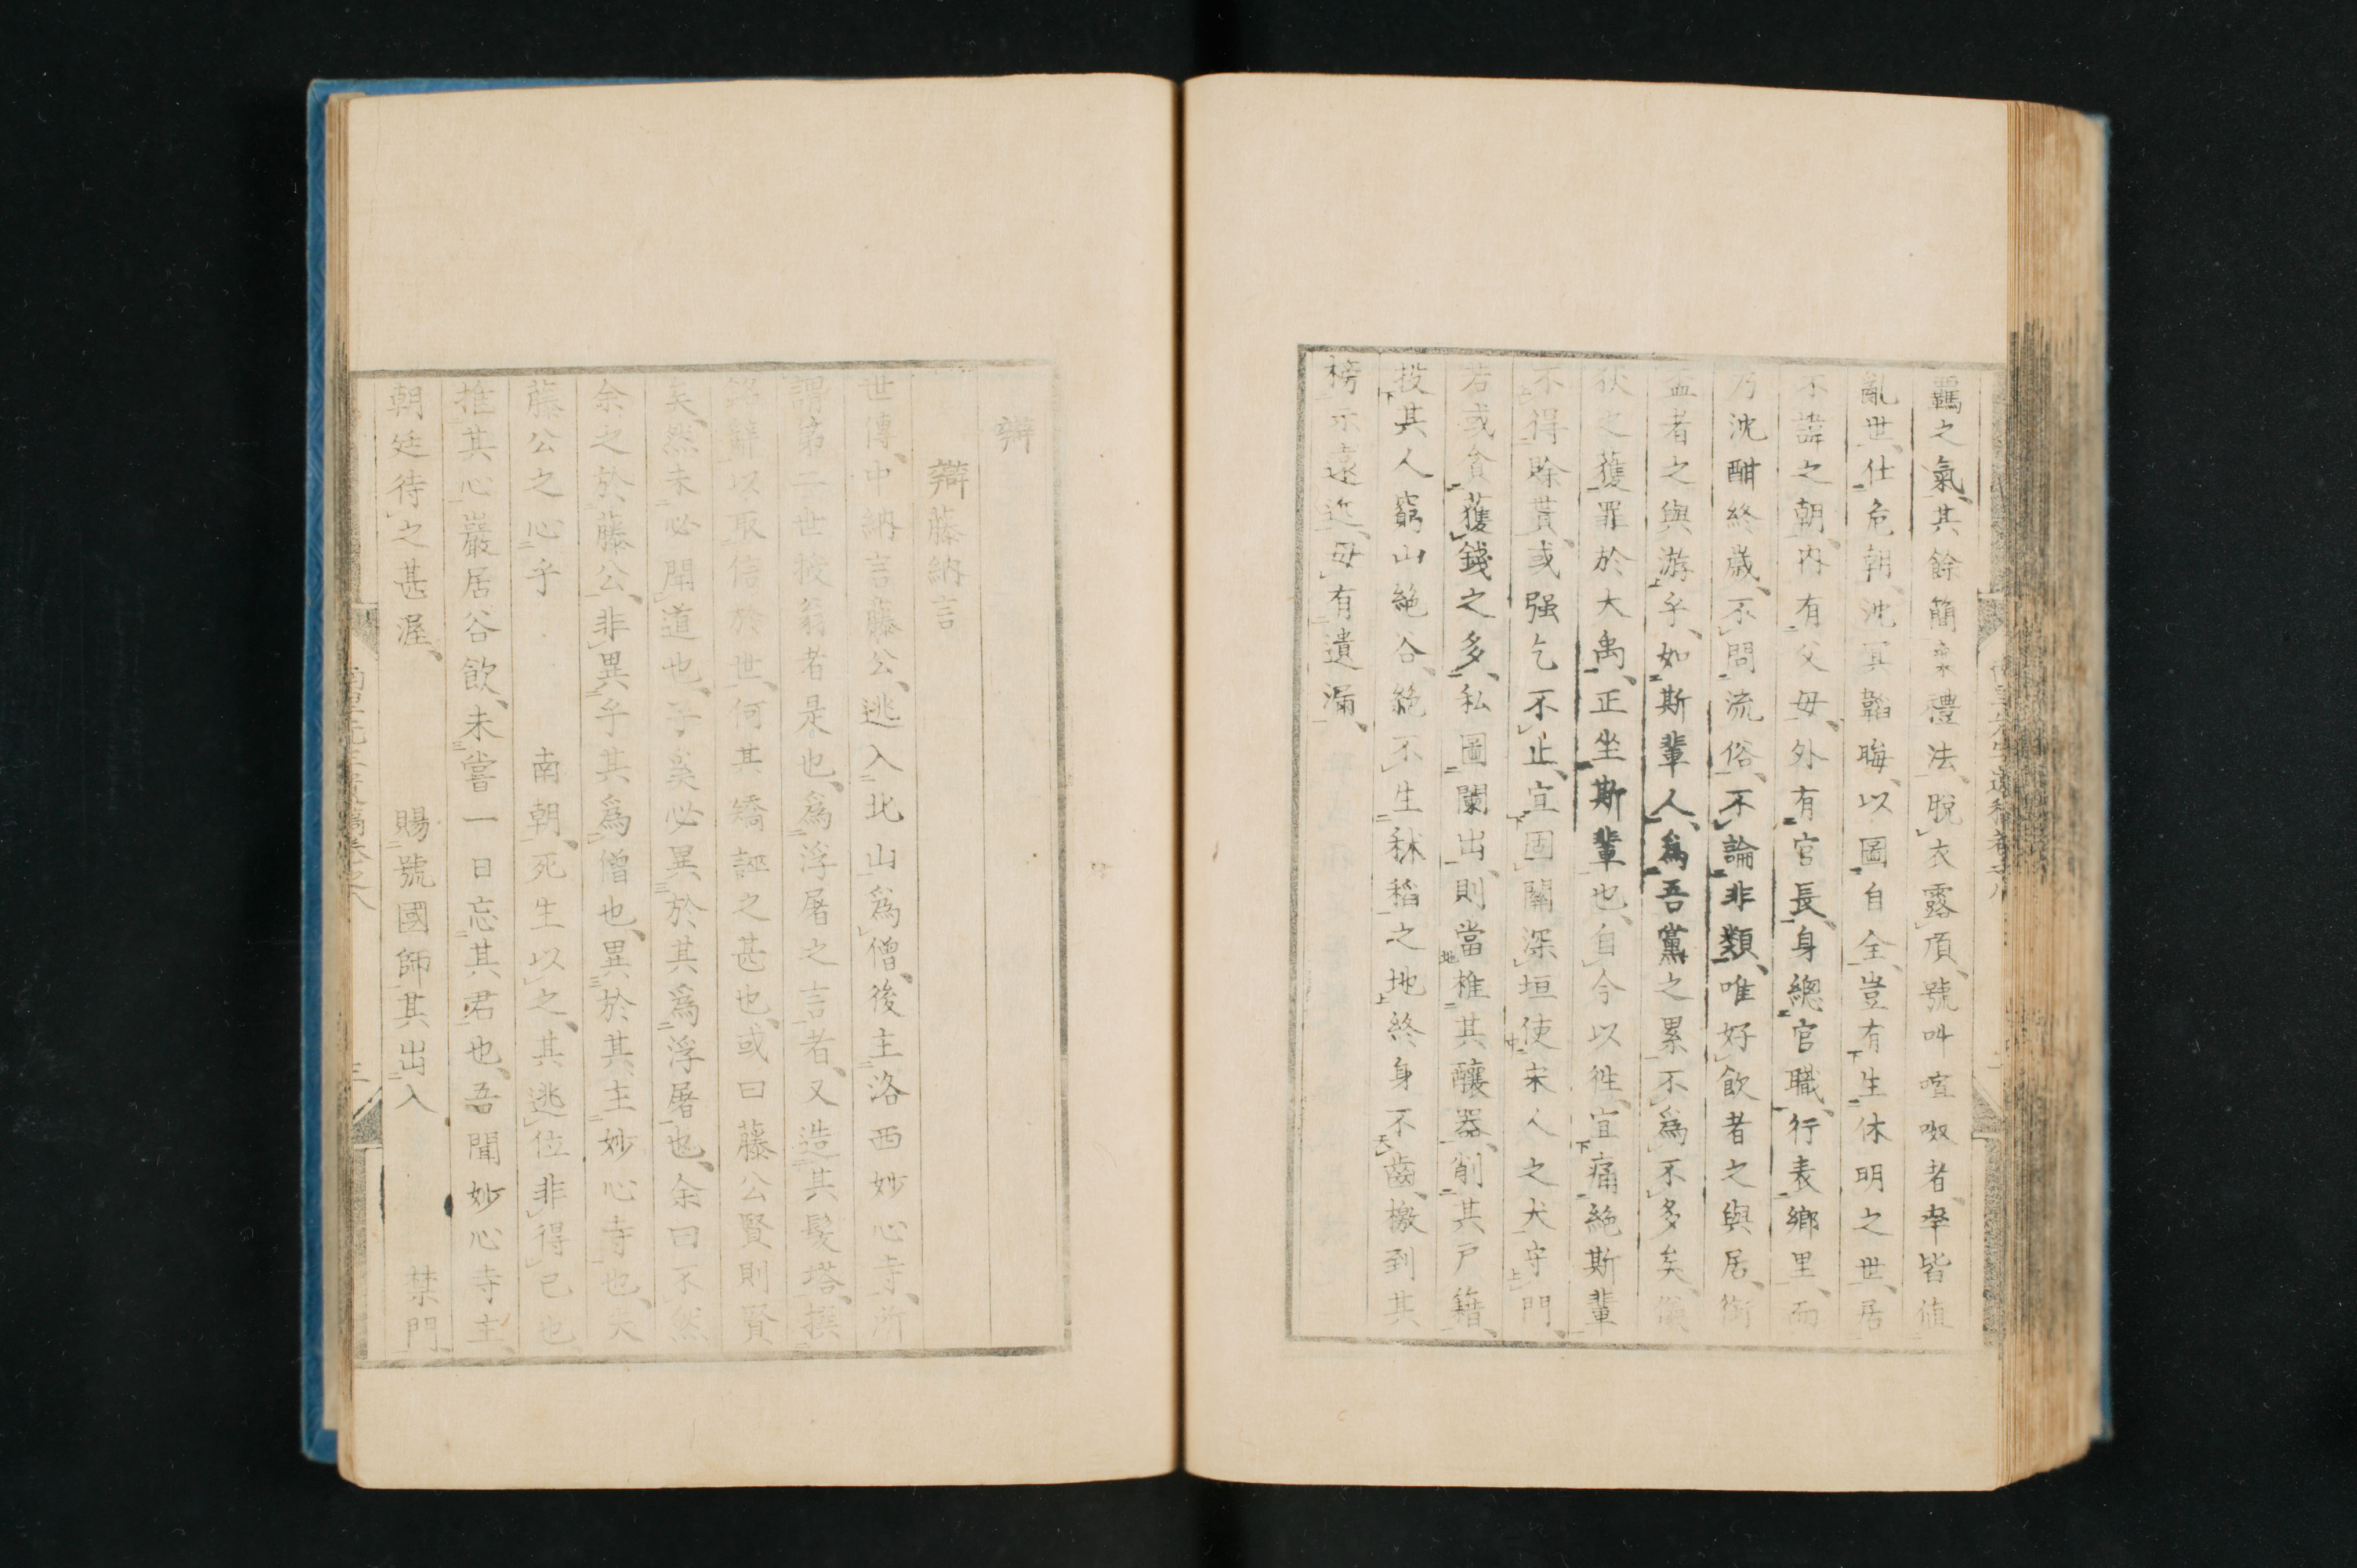 羈之氣、其餘簡棄禮法、脫衣露頂、號叫喧呶者、率皆值
亂世、仕危朝、沈冥韜晦、以圖自全、豈有生休明之世、居
不諱之朝、内有父母、外有官長、身總官職、行表鄉里、而
乃沈酣終歳、不問流俗、不論非類、唯好飲者之與居、銜
盃者之與游乎、如斯輩人、爲吾黨之累、不爲不多矣、儀
狄之獲罪於大禹、正坐斯輩也、自今以徃、宜痛絶斯輩
不得賒貰、或强乞不止、宜固闈深垣使宋人之犬守門、
若或貪獲錢之多、私圖闌出、則當椎其釀器、削其戸籍、
投其人窮山絶谷、絶不生秫稻之地、終身不齒、檄到其
榜示遠近、毋有遺漏、
辯
辯藤納言
世傳、中納言藤公、逃入北山爲僧、後主洛西妙心寺、所
謂第二世授翁者是也、爲浮屠之言者、又造其髮塔、撰
銘辭、以取信於世、何其矯誣之甚也、或曰藤公賢則賢
矣、然未必聞道也、子奚必異於其爲浮屠也、余曰不然
余之於藤公、非異乎其爲僧也、異於其主妙心寺也、夫
藤公之心乎南朝、死生以之、其逃位非得已也
推其心、巖居谷飲、未嘗一日忘其君也、吾聞妙心寺主、
朝廷待之甚渥、賜號國師其出入禁門、